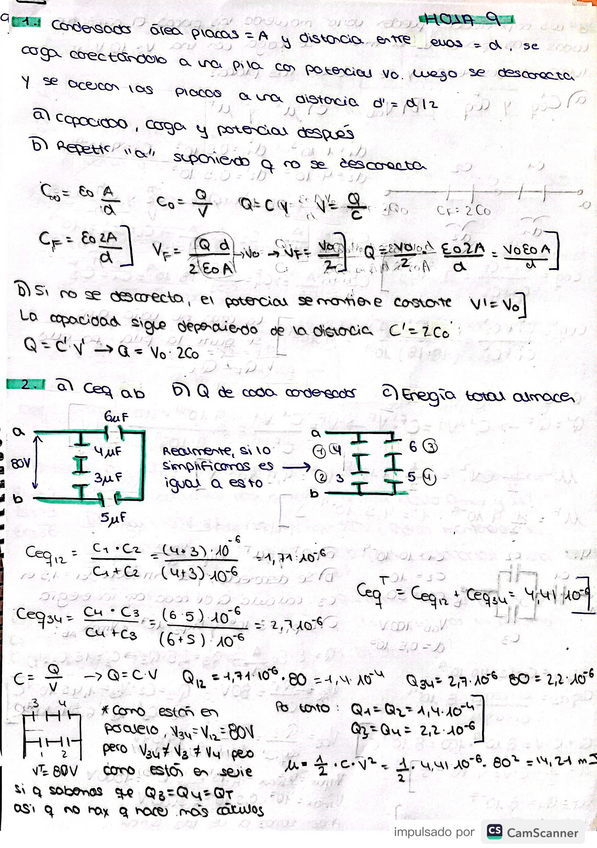 HOJA 9
1. Condensado área placas = A y distancia entre ellas = d. se
caga conectándolo a una pila con potencial Vo. Luego se desconecta
Y se acercan las placas a una distancia d' = d/2
a) capacidad, carga y potencial después
b) Repetir "a" suponiendo q no se desconecta
C₀ = ε₀ A/d C₀ = Q/V Q = C V V = Q/C CF = 2C₀
CF = ε₀ 2A/d] VF = Q d/2 ε₀ A → V₀ → VF = V₀/2] Q = V₀/2 · ε₀ 2A/d = V₀ ε₀ A/d]
b) Si no se desconecta, el potencial se mantiene constante V' = V₀]
La capacidad sigue dependiendo de la distancia C' = 2C₀
Q = C' V' → Q = V₀ · 2C₀
2. a) Ceq ab b) Q de cada condensador c) Energía total almacen
6μF
a
4μF
80V
3μF
b
5μF
Realmente, si lo
simplificamos es
igual a esto
a
① 4 6 ③
② 3 5 ④
b
Ceq12 = C1 · C2/C1 + C2 = (4·3)·10⁻⁶/(4+3)·10⁻⁶ = 1,71·10⁻⁶
Ceq34 = C4 · C3/C4 + C3 = (6·5)·10⁻⁶/(6+5)·10⁻⁶ = 2,7·10⁻⁶
CeqT = Ceq12 + Ceq34 = 4,41·10⁻⁶]
C = Q/V → Q = C·V Q12 = 1,71·10⁻⁶·80 = 1,4·10⁻⁴ Q34 = 2,7·10⁻⁶ 80 = 2,2·10⁻⁶
3 4
2
VT = 80V
* Como están en
paralelo, V34 = V12 = 80V
pero V34 ≠ V3 ≠ V4 pero
como están en serie
si q sabemos que Q3 = Q4 = QT
así q no hay q hacer más cálculos
Po tanto: Q1 = Q2 = 1,4·10⁻⁴
Q3 = Q4 = 2,2·10⁻⁶]
μ = 1/2 · C · V² = 1/2 · 4,41·10⁻⁶ · 80² = 14,21 mJ
impulsado por CS CamScanner